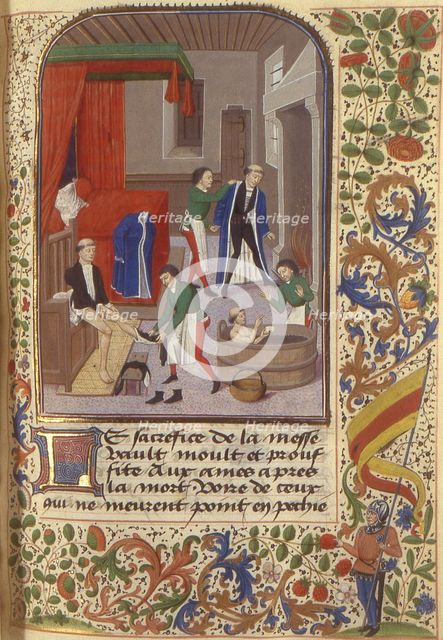 Le sacrefice de la messe
vault moult et prouf
fite aux ames apres
la mort voire de ceux
qui ne meurent point en pechie
Heritage
Heritage
Heritage
Heritage
Heritage
Heritage
Heritage